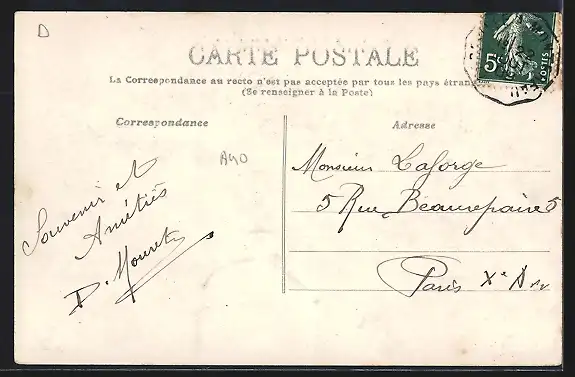 D
CARTE POSTALE
5c
POSTES
La Correspondance au recto n'est pas acceptée par tous les pays étran
(Se renseigner à la Poste)
Correspondance
Adresse
A40
Souvenir et
Amitiés
D. Mouret
Monsieur Laforge
5 Rue Beaurepaire 5
Paris Xe Arr